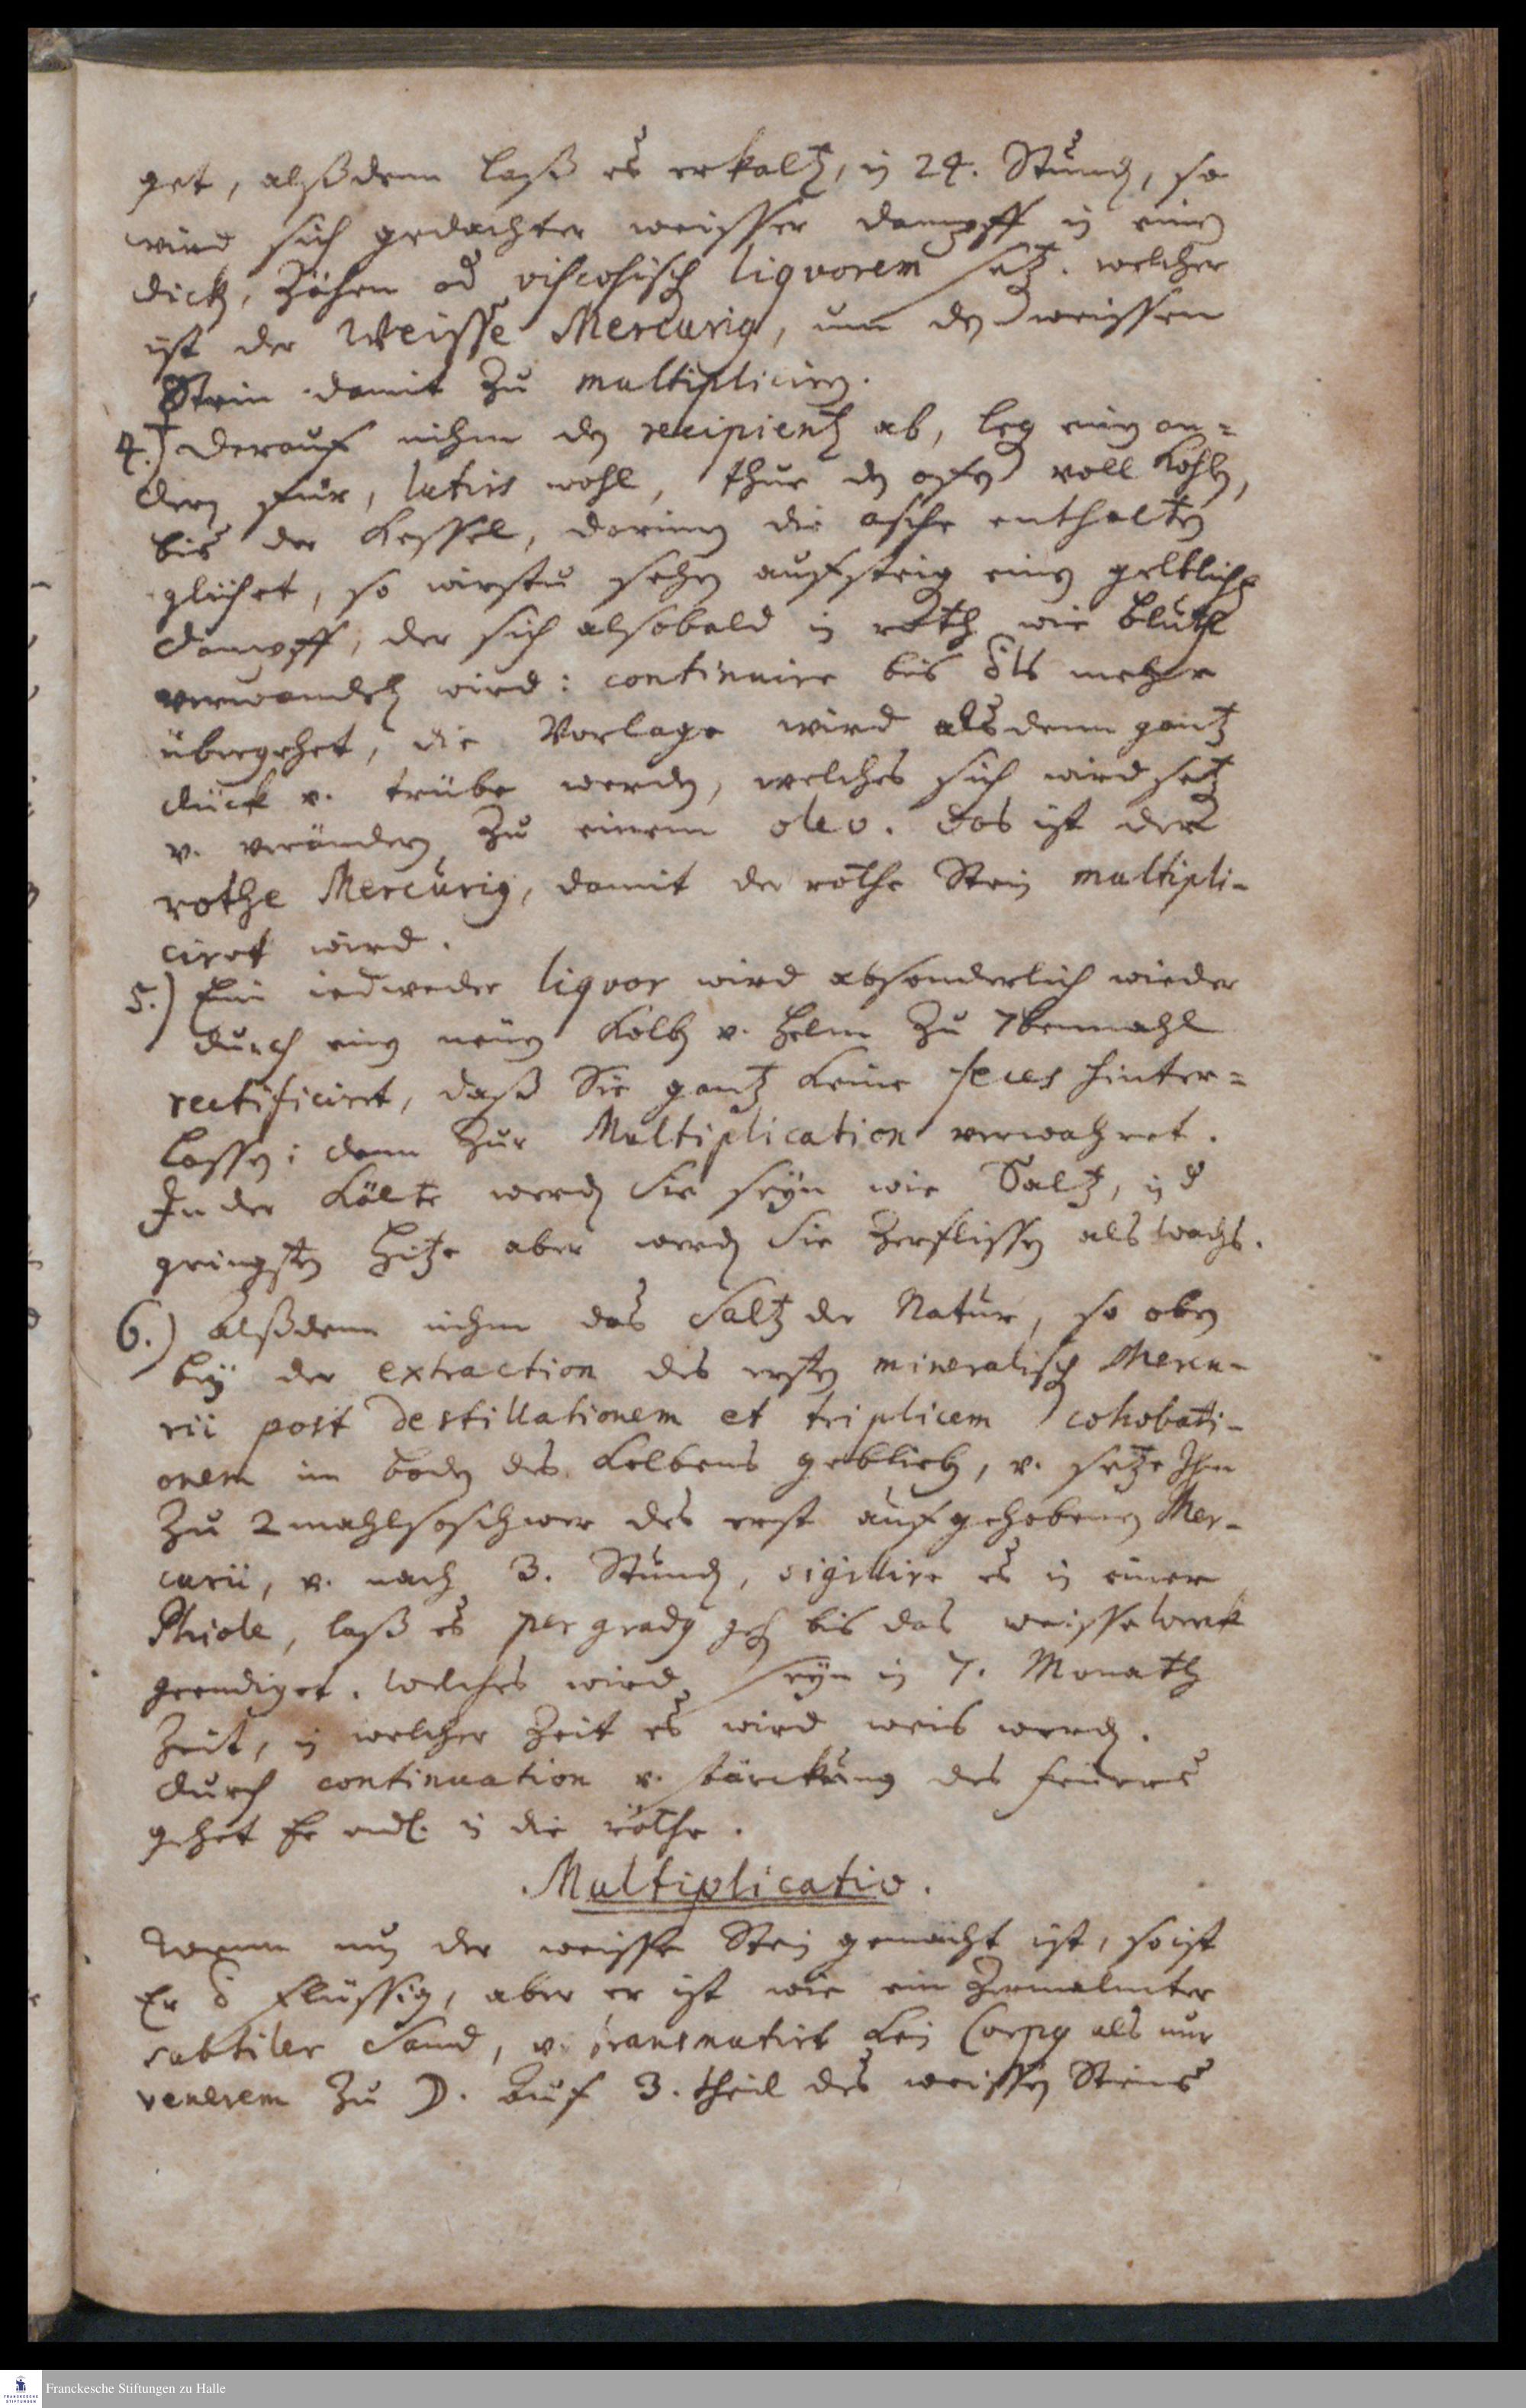 get, alßdenn laß es erkalten, in 24. Stunden, so
wird sich gedachter weisser dampff in einen
dicken, Zähen od viscosischen liqvorem setzen. welcher
ist der Weisse Mercurius, um den weissen
Stein damit zu multipliciren.
4.) darauf nihm den recipienten ab, leg einen an=
dern für, lutirs wohl, thue den ofen voll Kohlen,
bis der Kessel, darinnen die asche enthalten
glühet, so wirstu sehen aufsteigen einen gelblichen
dampff, der sich alsobald in roth wie bluth
verwandeln wird: continuire bis nichts mehr
übergehet, die Vorlage wird alsdenn gantz
dück v. trübe werden, welches sich wird setzen
v. verändern zu einem oleo. das ist der
rothe Mercurius, damit der rothe Stein multipli-
ciret wird.
5.) Ein iedweder liqvor wird absonderlich wieder
durch einen neuen Kolben v. Helm zu 7benmahl
rectificiret, daß Sie gantz keine feces hinter=
lassen; denn zur Multiplication verwahret.
In der Kälte werden Sie seyn wie Saltz, in der
geringsten Hitze aber werden Sie zerflissen als wachs.
6.) Alßdenn nihm das Saltz der Natur, so oben
bey der extraction des ersten mineralischen Mercu-
rii post destillationem et triplicem cohobati-
onem im boden des Kolbens geblieben, v. setze Ihm
zu 2mahl so schwer des erst aufgehobenen Mer-
curii, v. nach 3. Stunden, sigillire es in einer
Phiole, laß es per gradus gehen bis das weisse werk
geendiget. welches wird seyn in 7. Monathen
Zeit, in welcher Zeit es wird weis werden.
durch continuation v. stärckung des feuers
gehet Er endl. in die röthe.
Multiplicatio.
Wenn nun der weisse Stein gemacht ist, so ist
Er nicht flüssig, aber er ist wie ein zermalmter
subtiler Sand, v. transmutirt kein Corpus als nur
venerem zu ☽. Auf 3. theil des weissen Steins
Franckesche Stiftungen zu Halle